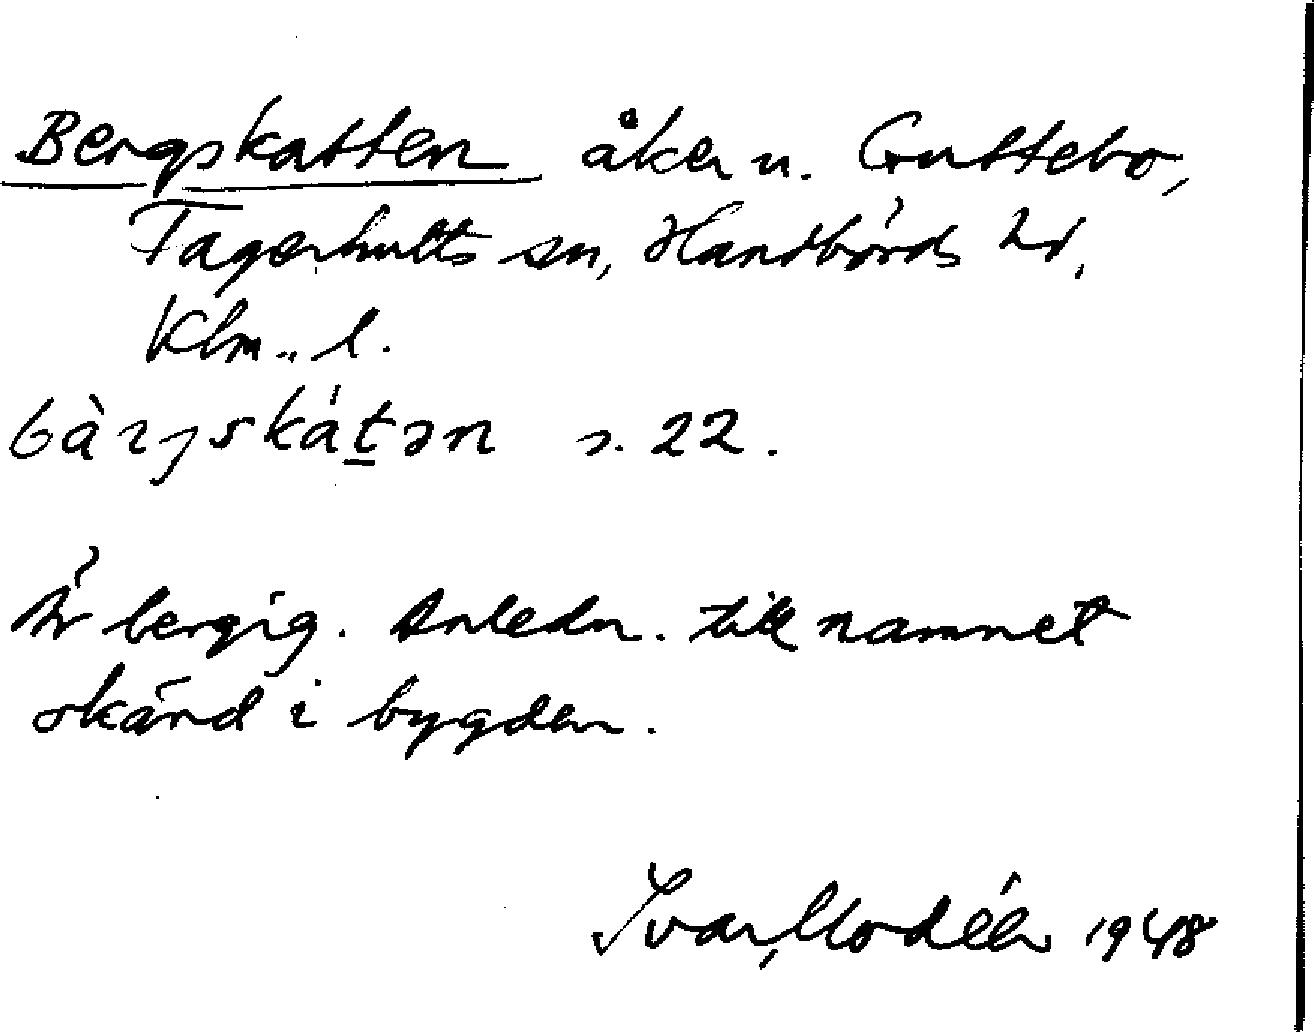 Bergskatten åker u. Guttebo,
Fagerhults sn, Handbörds hd,
Klm. l.
bàrjskát̠ən s. 22.
Är bergig. Anledn. till namnet
okänd i bygden.
Ivar Modéer 1948